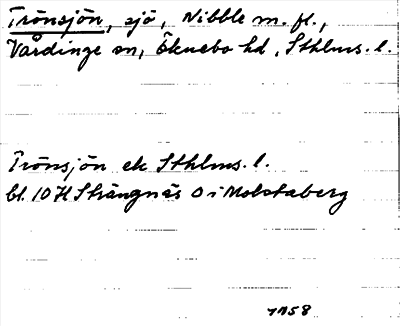 Trönsjön, sjö, Nibble m. fl.,
Vårdinge sn, Öknebo hd, Sthlms. l.
Trönsjön ek Sthlms. l.
bl. 10 H Strängnäs O i Molstaberg
1958